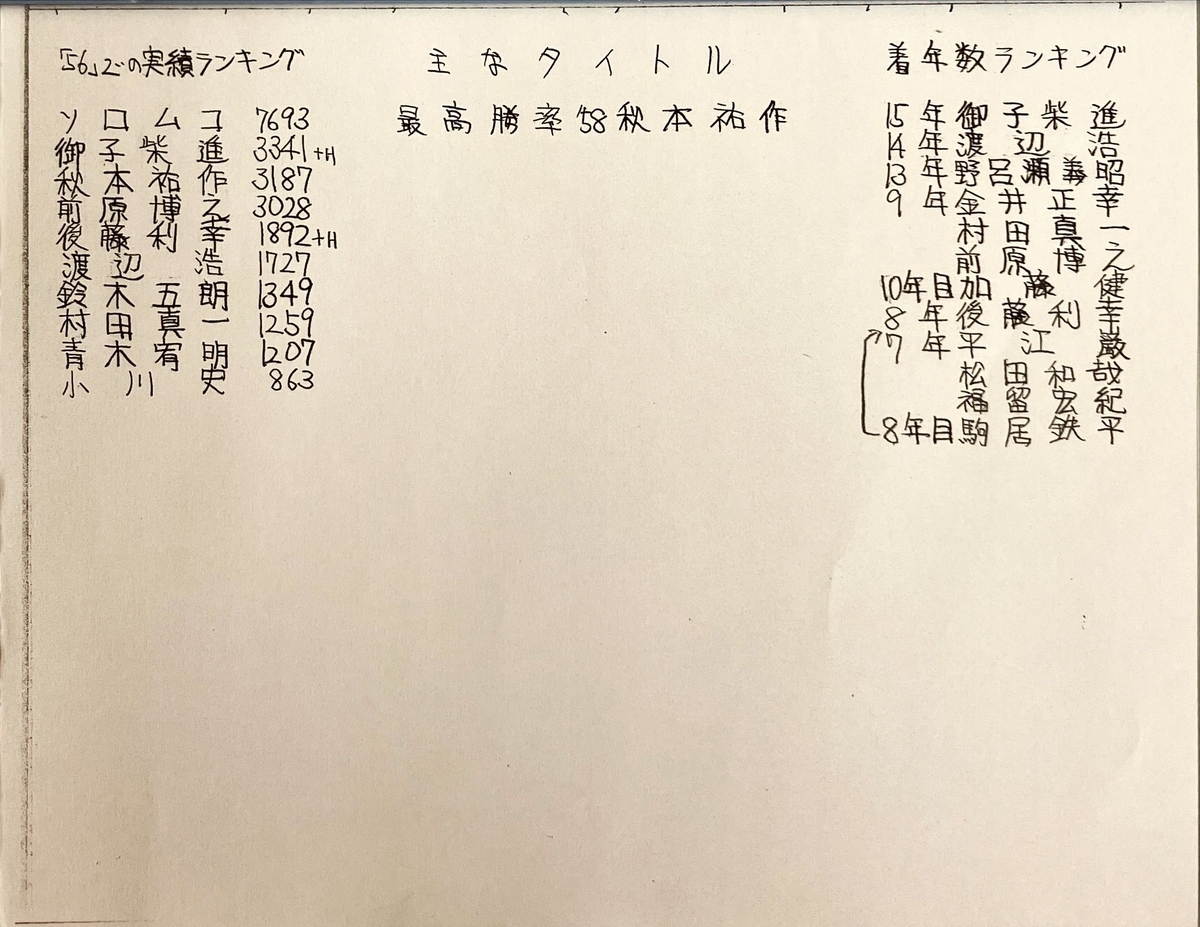 「56」での実績ランキング
ソロムコ 7693
御子柴進 3341+H
秋本祐作 3187
前原博之 3028
後藤利幸 1892+H
渡辺浩 1727
鈴木五朗 1349
村田真一 1259
青木宥明 1207
小川史 863
主なタイトル
最高勝率58秋本祐作
着年数ランキング
15年御子柴進
14年渡辺浩
13年野呂瀬義昭
9年金井正幸
村田真一
前原博之
10年目加藤健
8年後藤利幸
7年平江厳
松田和哉
福留宏紀
8年目駒居鉄平